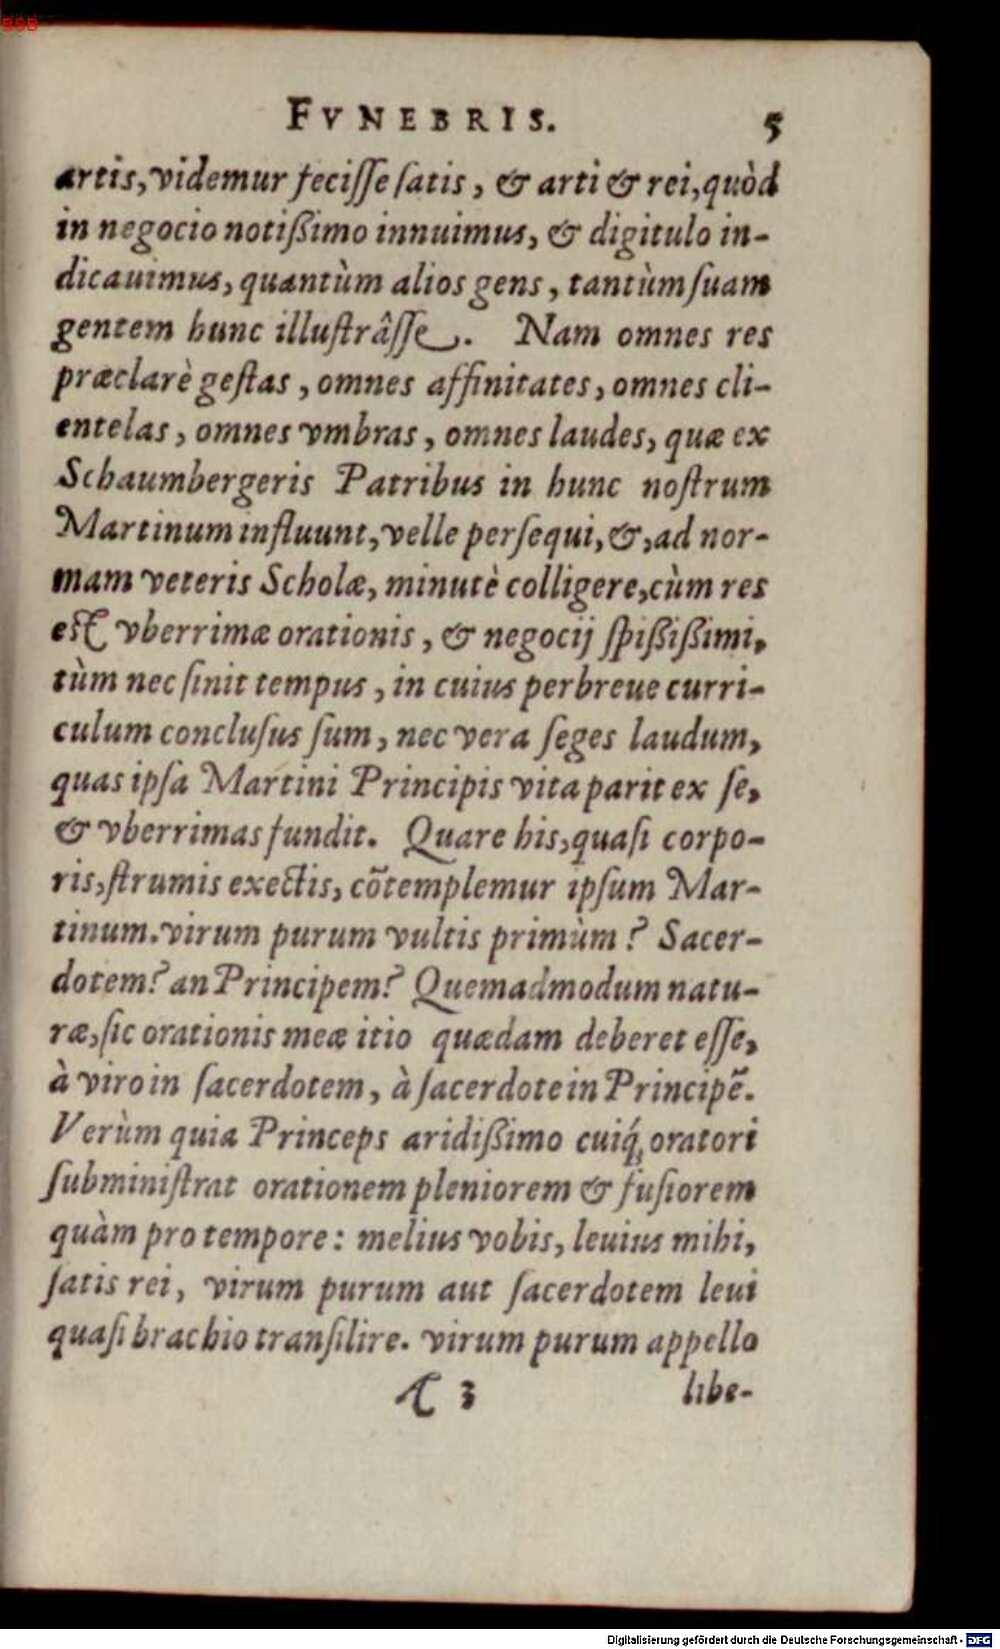 BSB
FVNEBRIS. 5
artis, videmur feciſſe ſatis, & arti & rei, quòd
in negocio notißimo innuimus, & digitulo in-
dicauimus, quantùm alios gens, tantùm ſuam
gentem hunc illuſtrâſſe. Nam omnes res
præclarè geſtas, omnes affinitates, omnes cli-
entelas, omnes vmbras, omnes laudes, quæ ex
Schaumbergeris Patribus in hunc noſtrum
Martinum influunt, velle perſequi, &, ad nor-
mam veteris Scholæ, minutè colligere, cùm res
eſt vberrimæ orationis, & negocij ſpißißimi,
tùm nec ſinit tempus, in cuius perbreue curri-
culum concluſus ſum, nec vera ſeges laudum,
quas ipſa Martini Principis vita parit ex ſe,
& vberrimas fundit. Quare his, quaſi corpo-
ris, ſtrumis exectis, cõtemplemur ipſum Mar-
tinum. virum purum vultis primùm? Sacer-
dotem? an Principem? Quemadmodum natu-
ræ, ſic orationis meæ itio quædam deberet eſſe,
à viro in ſacerdotem, à ſacerdote in Principẽ.
Verùm quia Princeps aridißimo cuiq́; oratori
ſubminiſtrat orationem pleniorem & fuſiorem
quàm pro tempore: melius vobis, leuius mihi,
ſatis rei, virum purum aut ſacerdotem leui
quaſi brachio tranſilire. virum purum appello
A 3 libe-
Digitalisierung gefördert durch die Deutsche Forschungsgemeinschaft - DFG